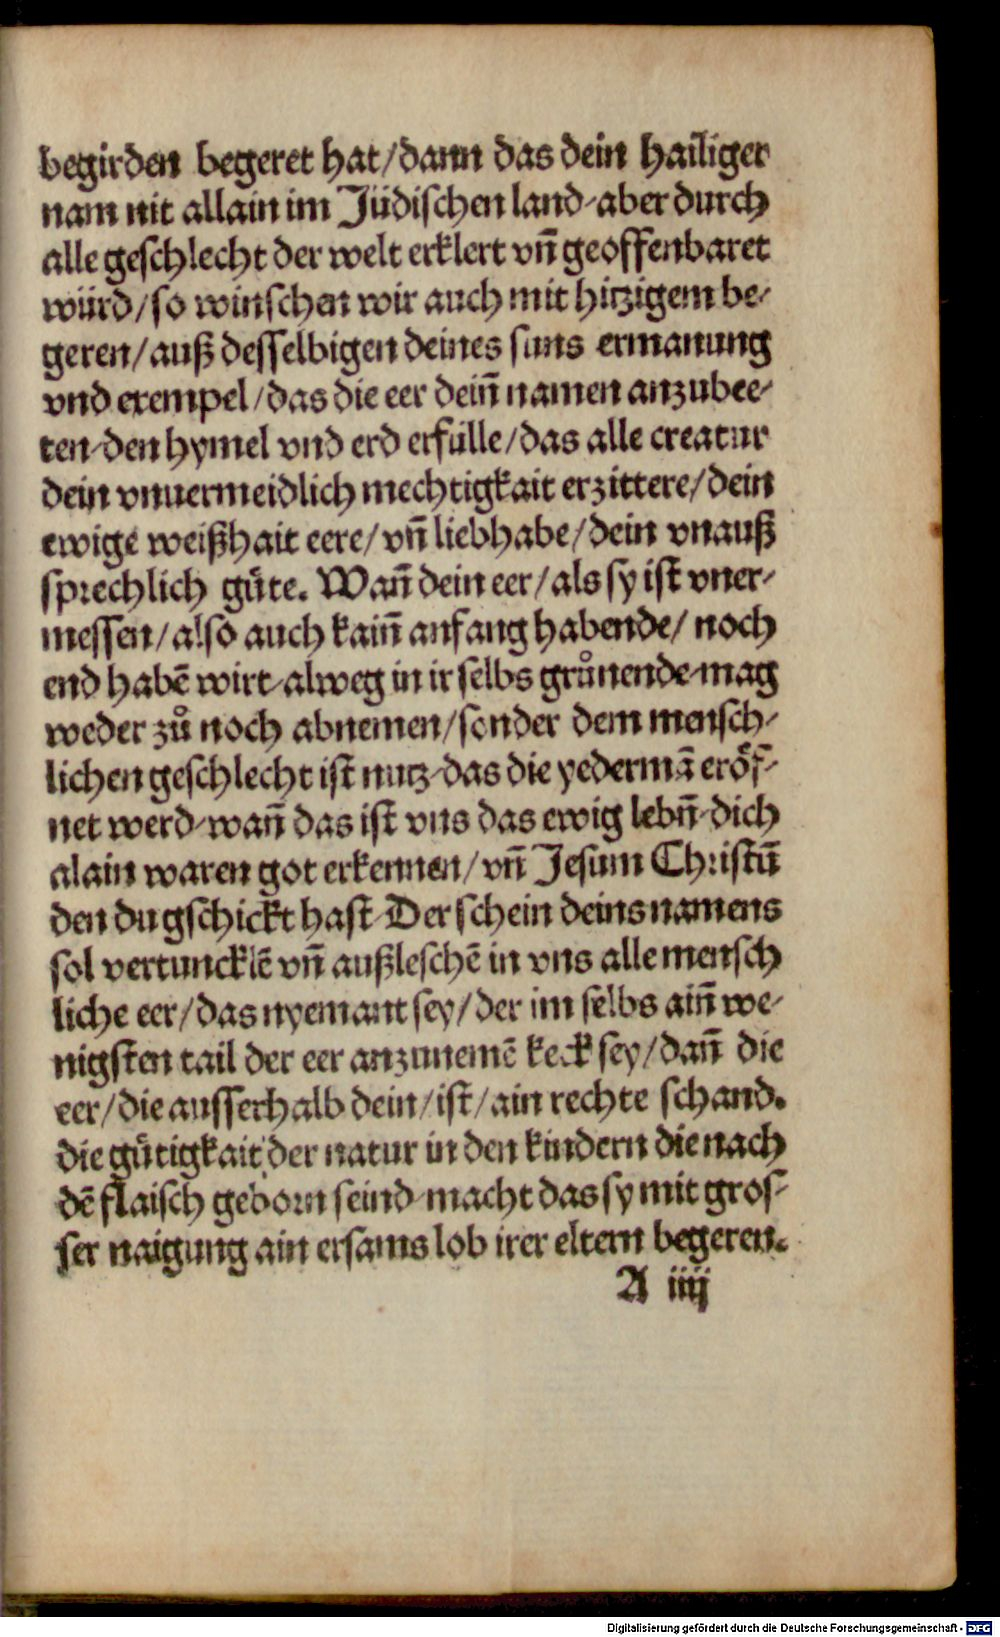 begirden begeret hat/dann das dein hailiger
nam nit allain im Jüdischen land/aber durch
alle geschlecht der welt erklert vñ geoffenbaret
würd/so winschen wir auch mit hitzigem be-
geren/auß desselbigen deines suns ermanung
vnd exempel/das die eer deiñ namen anzubee-
ten/den hymel vnd erd erfülle/das alle creatur
dein vnuermeidlich mechtigkait erzittere/dein
ewige weißhait eere/vñ liebhabe/dein vnauß
sprechlich guͤte. Wañ dein eer/als sy ist vner-
messen/also auch kaiñ anfang habende/noch
end habē wirt/alweg in ir selbs gruͦnende/mag
weder zuͦ noch abnemen/sonder dem mensch-
lichen geschlecht ist nutz/das die yedermā eroͤf-
net werd/wañ das ist vns das ewig lebñ/dich
alain waren got erkennen/vñ Jesum Christū
den du gschickt hast/Der schein deins namens
sol vertuncklē vñ außleschē in vns alle mensch
liche eer/das nyemant sey/der im selbs aiñ we-
nigsten tail der eer anzunemē keck sey/dañ die
eer/die ausserhalb dein/ist/ain rechte schand.
die guͤtigkait der natur in den kindern die nach
dē flaisch geborn seind/macht das sy mit gros-
ser naigung ain ersams lob irer eltern begeren.
A iiij
Digitalisierung gefördert durch die Deutsche Forschungsgemeinschaft - DFG